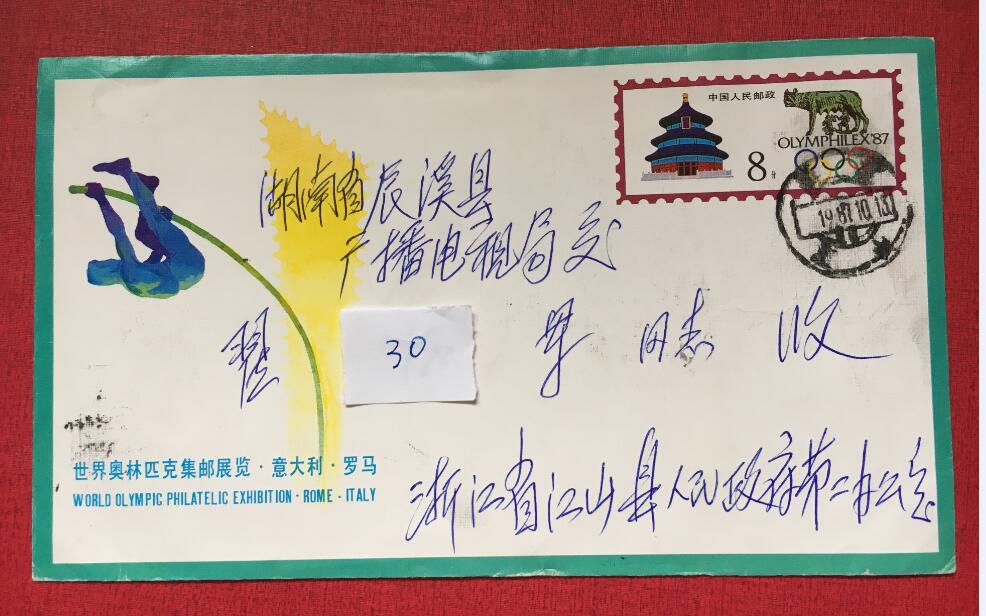 中国人民邮政
8分
OLYMPHILEX'87
1987.10.13
湖南省辰溪县
广播电视局交
翟
30
同志 收
世界奥林匹克集邮展览·意大利·罗马
WORLD OLYMPIC PHILATELIC EXHIBITION · ROME · ITALY
浙江省江山县人民政府第二办公室